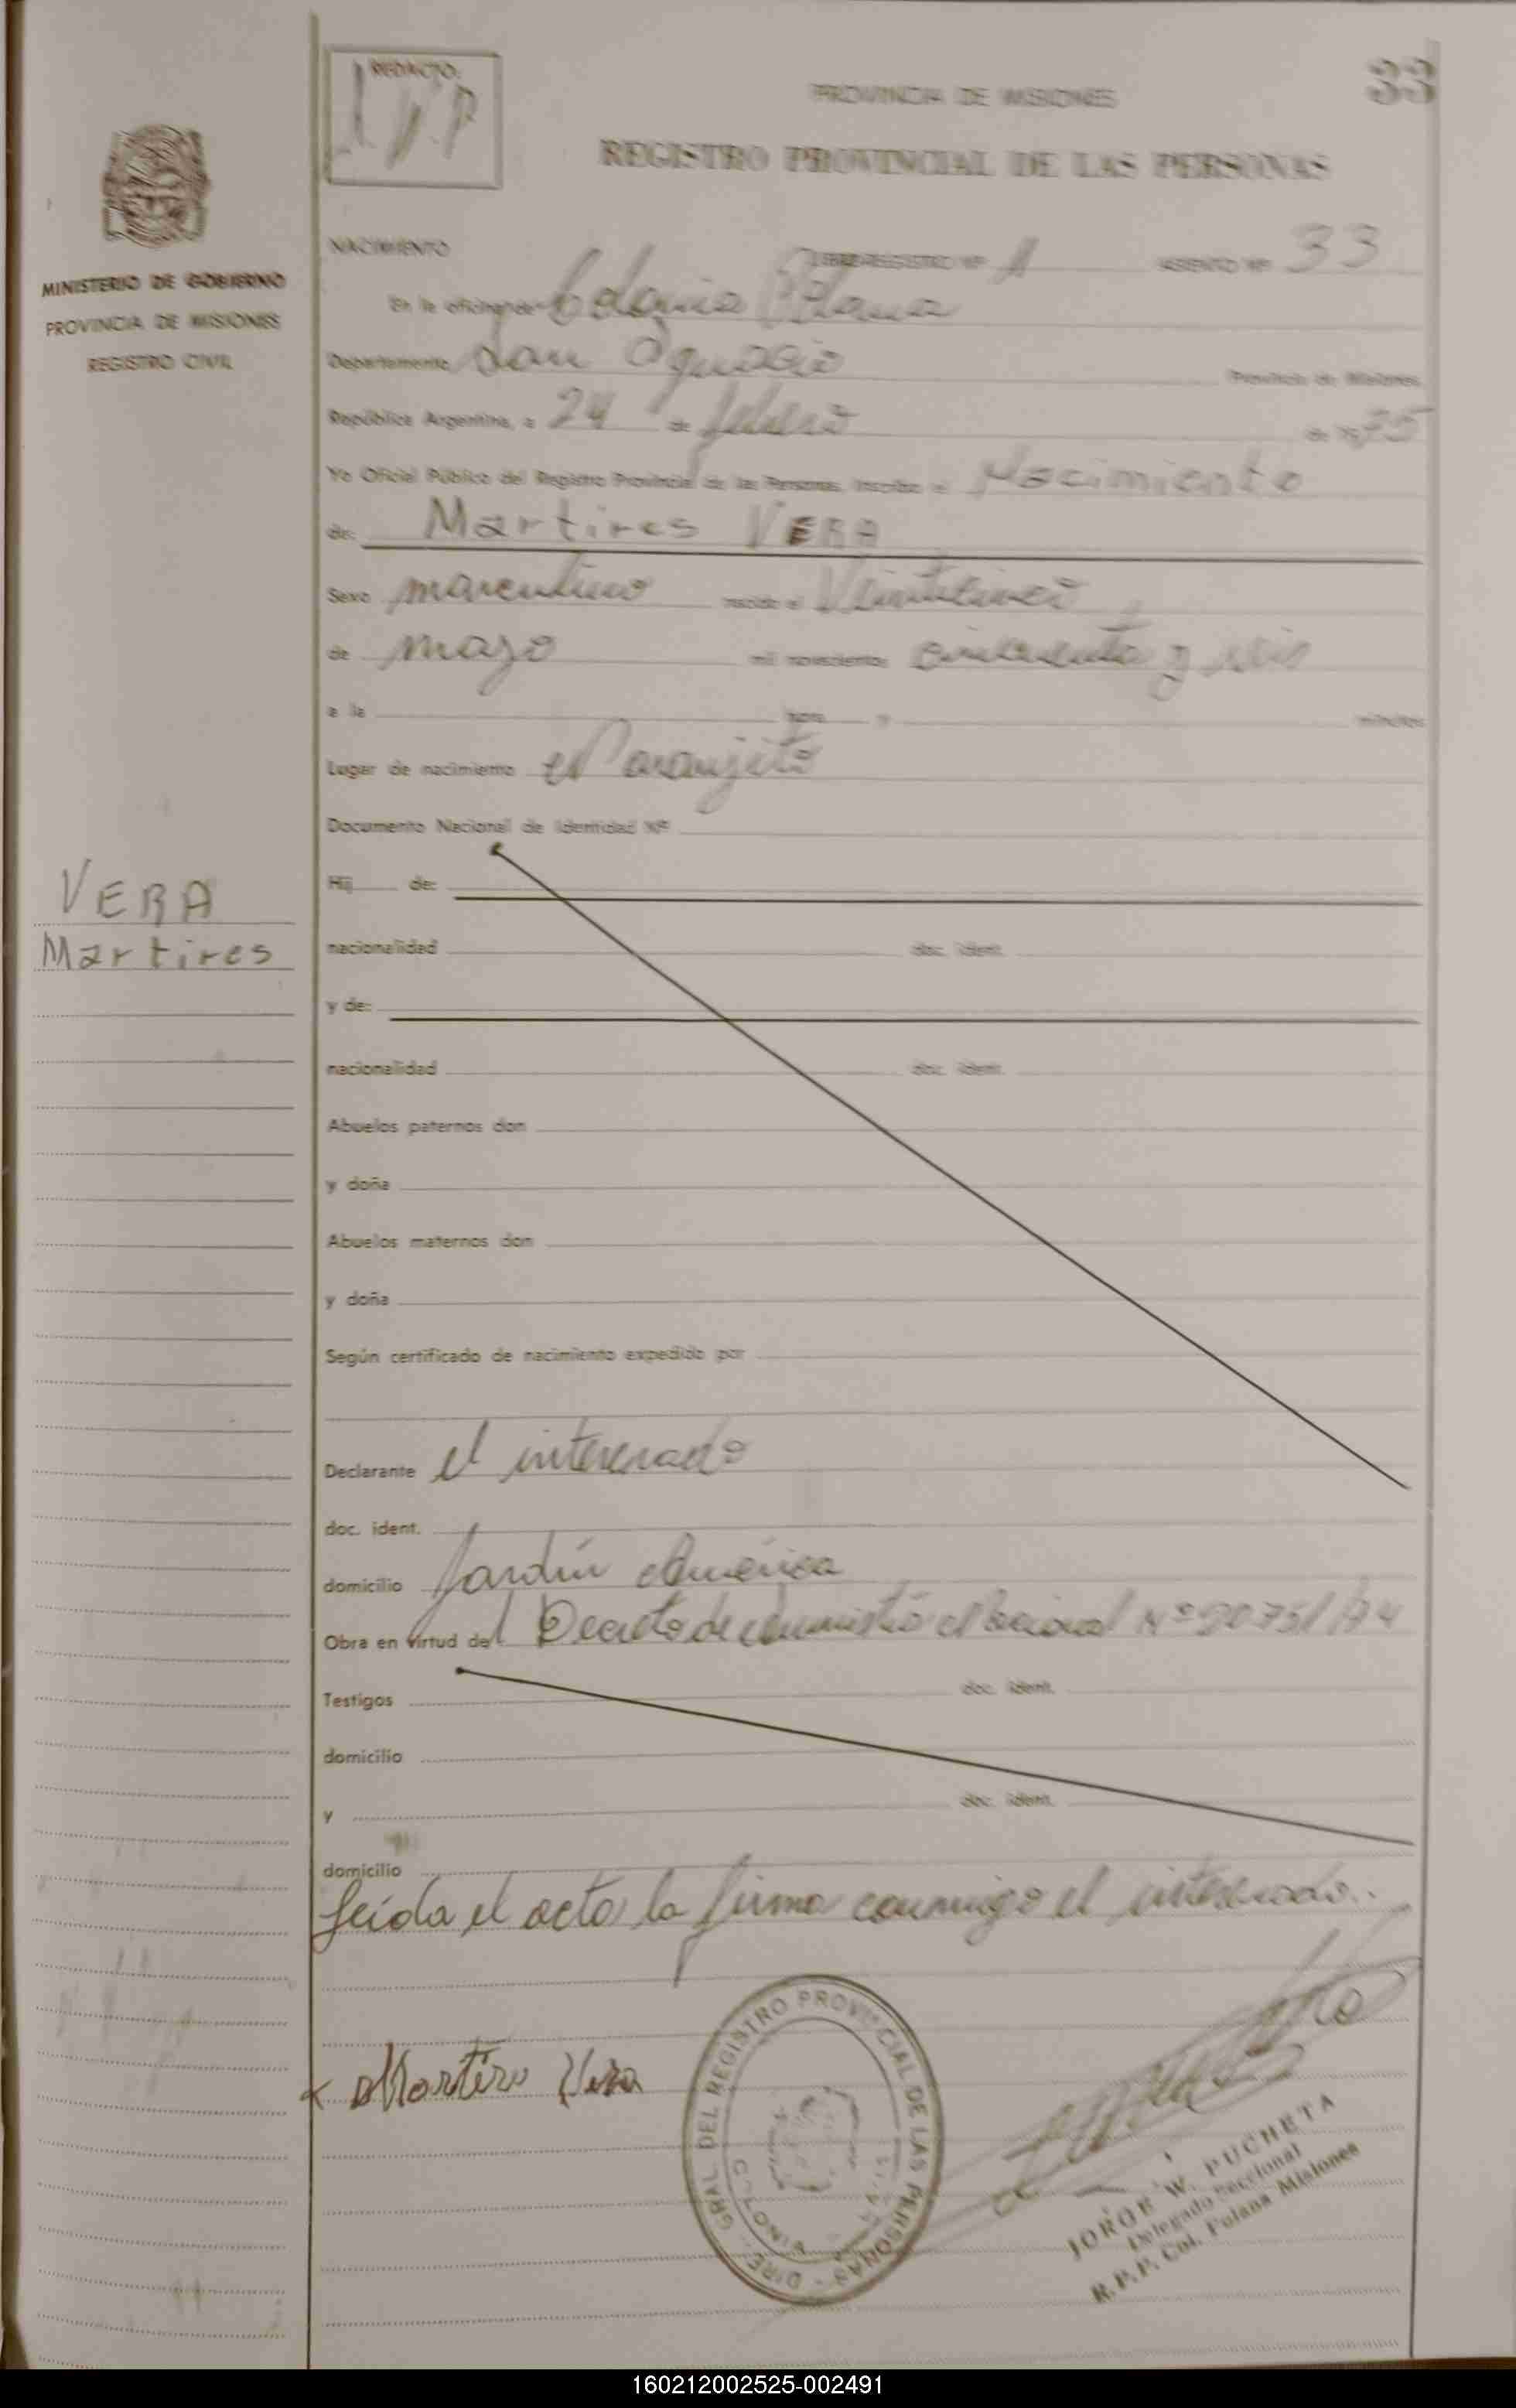 33
REDACTO:
PROVINCIA DE MISIONES
REGISTRO PROVINCIAL DE LAS PERSONAS
MINISTERIO DE GOBIERNO
PROVINCIA DE MISIONES
REGISTRO CIVIL
NACIMIENTO LIBRO REGISTRO Nº 1 ASIENTO Nº 33
En la oficina de Colonia Polana
Departamento San Ignacio Provincia de Misiones
República Argentina, a 24 de febrero de 1975
Yo Oficial Público del Registro Provincial de las Personas, inscribo el Nacimiento
de: Martires VERA
Sexo masculino nacido el Veinticinco
de mayo mil novecientos cincuenta y seis
a la hora y minutos
Lugar de nacimiento el Naranjito
Documento Nacional de Identidad Nº
VERA
Martires
Hij de:
nacionalidad doc. ident.
y de:
nacionalidad doc. ident.
Abuelos paternos don
y doña
Abuelos maternos don
y doña
Según certificado de nacimiento expedido por
Declarante el interesado
doc. ident.
domicilio Jardín América
Obra en virtud del Decreto de Nacional Nº 2075/74
Testigos doc. ident.
domicilio
y doc. ident.
domicilio
leída el acta la firma conmigo el interesado.
x Martires Vera
DIRE. GRAL. DEL REGISTRO PROVINCIAL DE LAS PERSONAS
COLONIA
JORGE W. PUCHETA
Delegado Seccional
R.P.P. Col. Polana Misiones
160212002525-002491